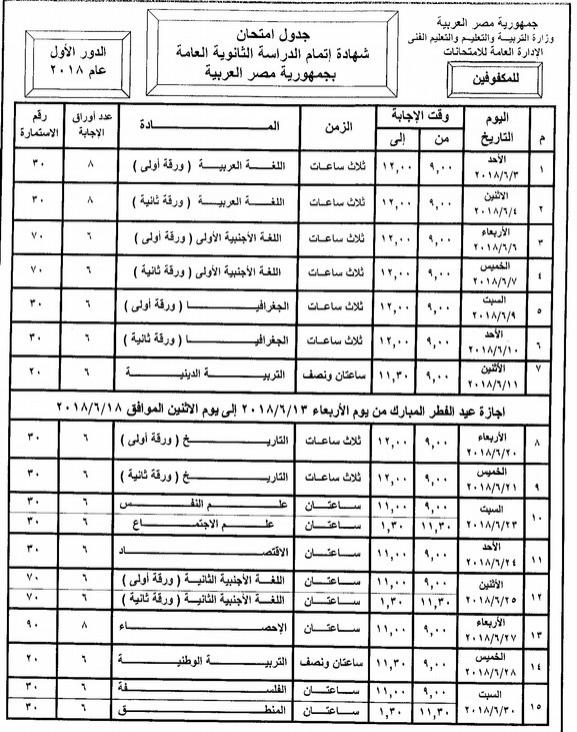 جمهورية مصر العربية
وزارة التربية والتعليم والتعليم الفنى
الإدارة العامة للامتحانات
للمكفوفين
جدول امتحان
شهادة إتمام الدراسة الثانوية العامة
بجمهورية مصر العربية
الدور الأول
عام ٢٠١٨
م اليوم التاريخ وقت الإجابة من إلى الزمن المــادة عدد أوراق الإجابة رقم الاستمارة
١ الأحد ٢٠١٨/٦/٣ ٩,٠٠ ١٢,٠٠ ثلاث ساعات اللغة العربية ( ورقة أولى ) ٨ ٣٠
٢ الاثنين ٢٠١٨/٦/٤ ٩,٠٠ ١٢,٠٠ ثلاث ساعات اللغة العربية ( ورقة ثانية ) ٨ ٣٠
٣ الأربعاء ٢٠١٨/٦/٦ ٩,٠٠ ١٢,٠٠ ثلاث ساعات اللغة الأجنبية الأولى ( ورقة أولى ) ٦ ٧٠
٤ الخميس ٢٠١٨/٦/٧ ٩,٠٠ ١٢,٠٠ ثلاث ساعات اللغة الأجنبية الأولى ( ورقة ثانية ) ٦ ٧٠
٥ السبت ٢٠١٨/٦/٩ ٩,٠٠ ١٢,٠٠ ثلاث ساعات الجغرافيا ( ورقة أولى ) ٦ ٣٠
٦ الأحد ٢٠١٨/٦/١٠ ٩,٠٠ ١٢,٠٠ ثلاث ساعات الجغرافيا ( ورقة ثانية ) ٦ ٣٠
٧ الأثنين ٢٠١٨/٦/١١ ٩,٠٠ ١١,٣٠ ساعتان ونصف التربية الدينية ٦ ٢٠
اجازة عيد الفطر المبارك من يوم الأربعاء ٢٠١٨/٦/١٣ إلى يوم الاثنين الموافق ٢٠١٨/٦/١٨
٨ الأربعاء ٢٠١٨/٦/٢٠ ٩,٠٠ ١٢,٠٠ ثلاث ساعات التاريخ ( ورقة أولى ) ٦ ٣٠
٩ الخميس ٢٠١٨/٦/٢١ ٩,٠٠ ١٢,٠٠ ثلاث ساعات التاريخ ( ورقة ثانية ) ٦ ٣٠
١٠ السبت ٢٠١٨/٦/٢٣ ٩,٠٠ ١١,٠٠ ساعتان علم النفس ٦ ٣٠
١١,٣٠ ١,٣٠ ساعتان علم الاجتماع ٦ ٣٠
١١ الأحد ٢٠١٨/٦/٢٤ ٩,٠٠ ١١,٠٠ ساعتان الاقتصاد ٦ ٣٠
١٢ الأثنين ٢٠١٨/٦/٢٥ ٩,٠٠ ١١,٠٠ ساعتان اللغة الأجنبية الثانية ( ورقة أولى ) ٦ ٧٠
١١,٣٠ ١,٣٠ ساعتان اللغة الأجنبية الثانية ( ورقة ثانية ) ٦ ٧٠
١٣ الأربعاء ٢٠١٨/٦/٢٧ ٩,٠٠ ١١,٠٠ ساعتان الإحصاء ٨ ٩٠
١٤ الخميس ٢٠١٨/٦/٢٨ ٩,٠٠ ١١,٣٠ ساعتان ونصف التربية الوطنية ٦ ٢٠
١٥ السبت ٢٠١٨/٦/٣٠ ٩,٠٠ ١١,٠٠ ساعتان الفلسفة ٦ ٣٠
١١,٣٠ ١,٣٠ ساعتان المنطق ٦ ٣٠